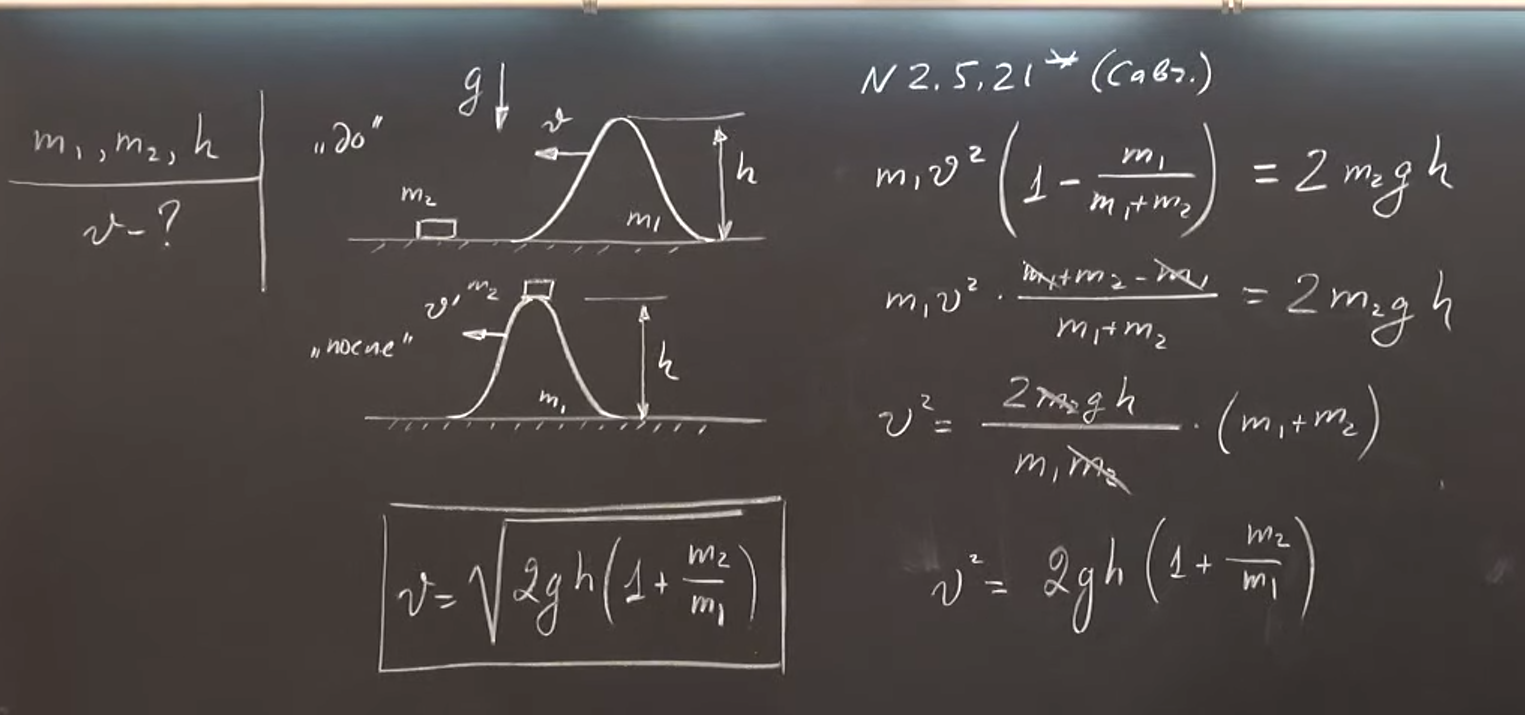 m₁, m₂, h
v - ?
„до"
g
v
h
m₂
m₁
„после"
v', m₂
h
m₁
v = √(2gh(1 + m₂/m₁))
N 2.5.21* (Савч.)
m₁v²(1 - m₁/(m₁+m₂)) = 2m₂gh
m₁v² · (m₁+m₂-m₁)/(m₁+m₂) = 2m₂gh
v² = 2m₂gh/(m₁m₂) · (m₁+m₂)
v² = 2gh(1 + m₂/m₁)